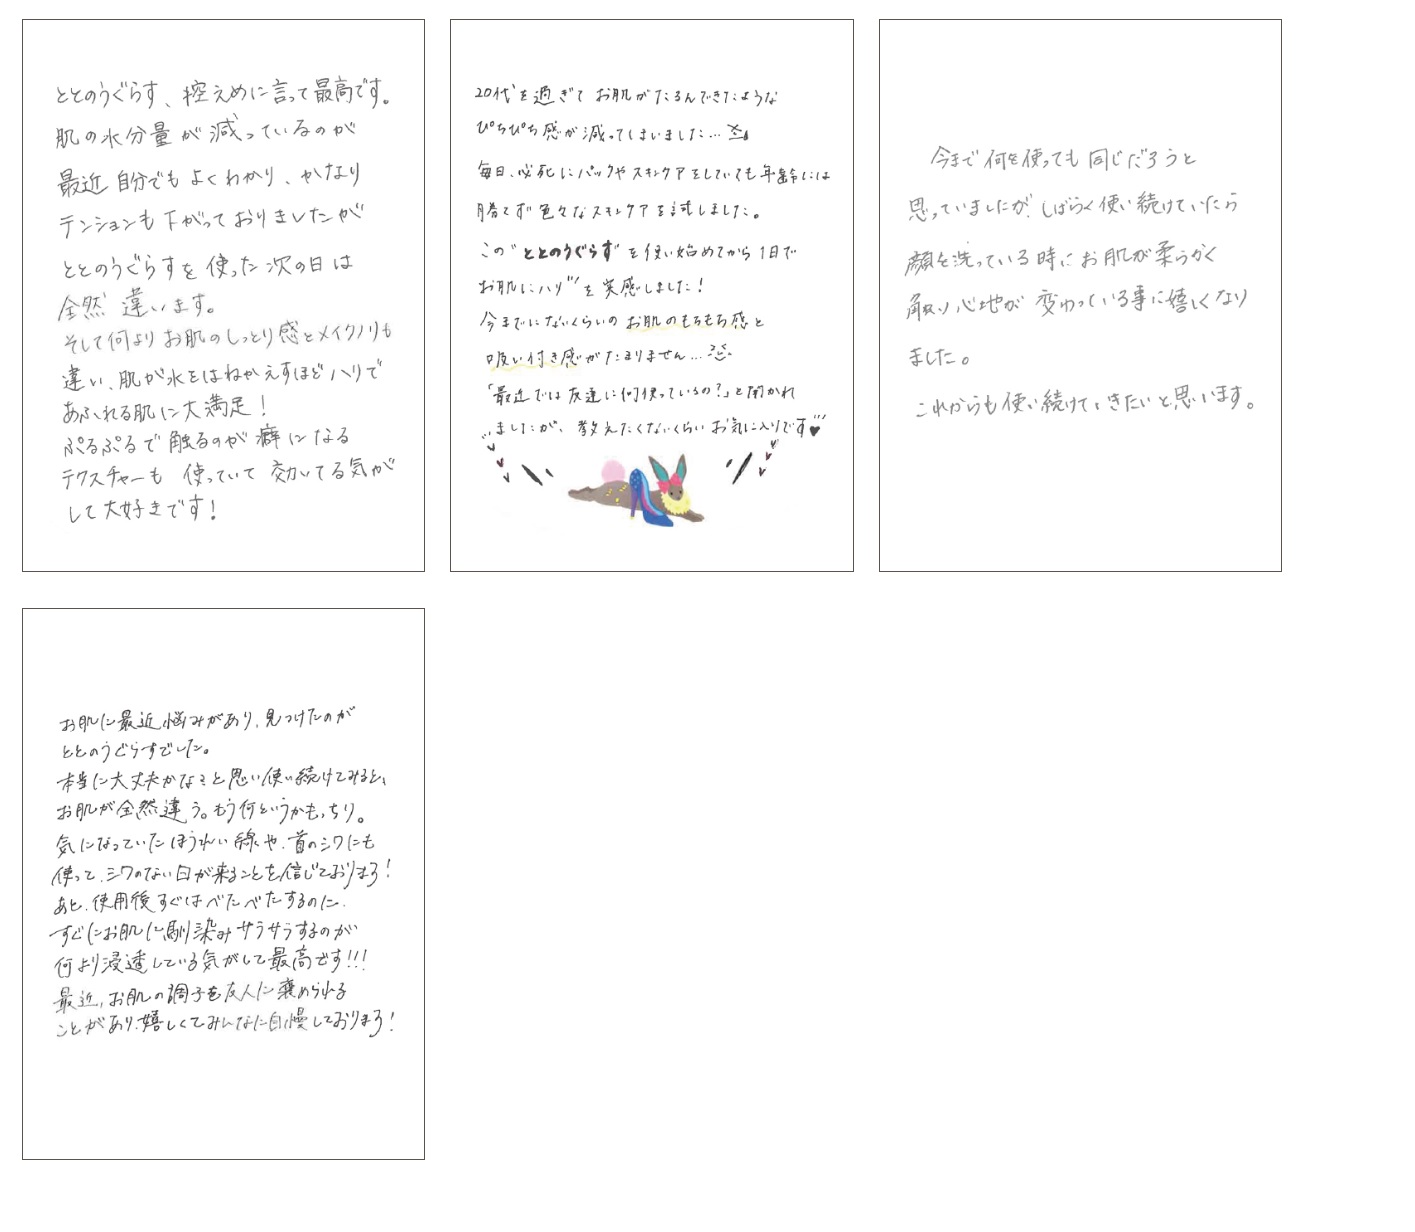 ととのうぐらす、控えめに言って最高です。
肌の水分量が減っているのが
最近自分でもよくわかり、かなり
テンションも下がっておりましたが
ととのうぐらすを使った次の日は
全然違います。
そして何よりお肌のしっとり感とメイクノリも
違い、肌が水をはねかえすほどハリで
あふれる肌に大満足！
ぷるぷるで触るのが癖になる
テクスチャーも使っていて効いてる気が
して大好きです！
20代を過ぎてお肌がたるんできたような
ぴちぴち感が減ってしまいました…
毎日、必死にパックやスキンケアをしていても年齢には
勝てず色々なスキンケアを試しました。
この"ととのうぐらす"を使い始めてから1日で
お肌にハリ"を実感しました！
今までにないくらいのお肌のもちもち感と
吸い付き感がたまりません…
「最近では友達に何使っているの？」と聞かれ
ましたが、教えたくないくらいお気に入りです♥
今まで何を使っても同じだろうと
思っていましたが、しばらく使い続けていたら
顔を洗っている時にお肌が柔らかく
触り心地が変わっている事に嬉しくなり
ました。
これからも使い続けていきたいと思います。
お肌に最近悩みがあり、見つけたのが
ととのうぐらすでした。
本当に大丈夫かな？と思い使い続けてみると、
お肌が全然違う。もう何というかもっちり。
気になっていたほうれい線や、首のシワにも
使って、シワのない日が来ることを信じております！
あと、使用後すぐはべたべたするのに、
すぐにお肌に馴染みサラサラするのが
何より浸透している気がして最高です!!!
最近、お肌の調子を友人に褒められる
ことがあり、嬉しくてみんなに自慢しております！